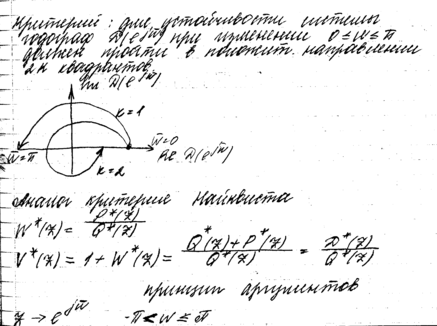 Критерий: для устойчивости системы
годограф D(e^jw̄) при изменении 0≤w̄≤π
должен пройти в положит. направлении
2k квадрантов.
Im D(e^jw̄)
k=1
w̄=π
w̄=0
k=2
Re D(e^jw̄)
Аналог критерия Найквиста
W*(z) = P*(z) / Q*(z)
V*(z) = 1 + W*(z) = Q*(z)+P*(z) / Q*(z) = D*(z) / Q*(z)
принцип аргументов
z → e^jw̄ -π<w̄≤π